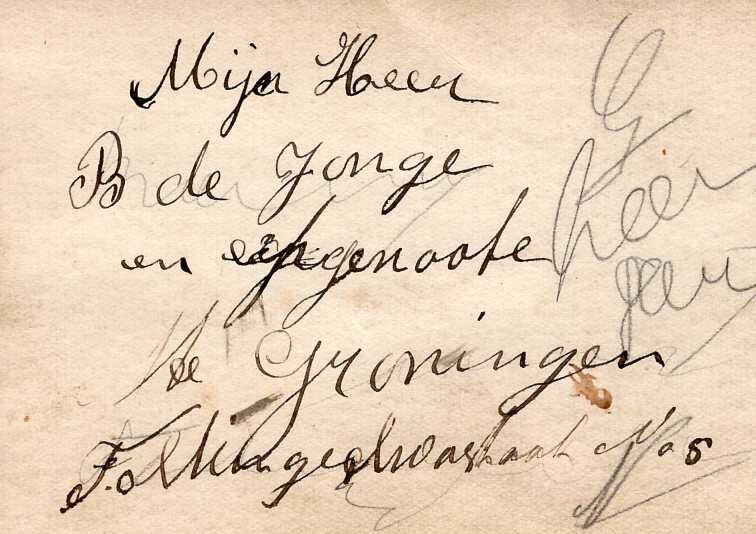 Mijn Heer
B de Jonge
en egtgenoote
te Groningen
Folkingedwarsstraat No 5
G
heer